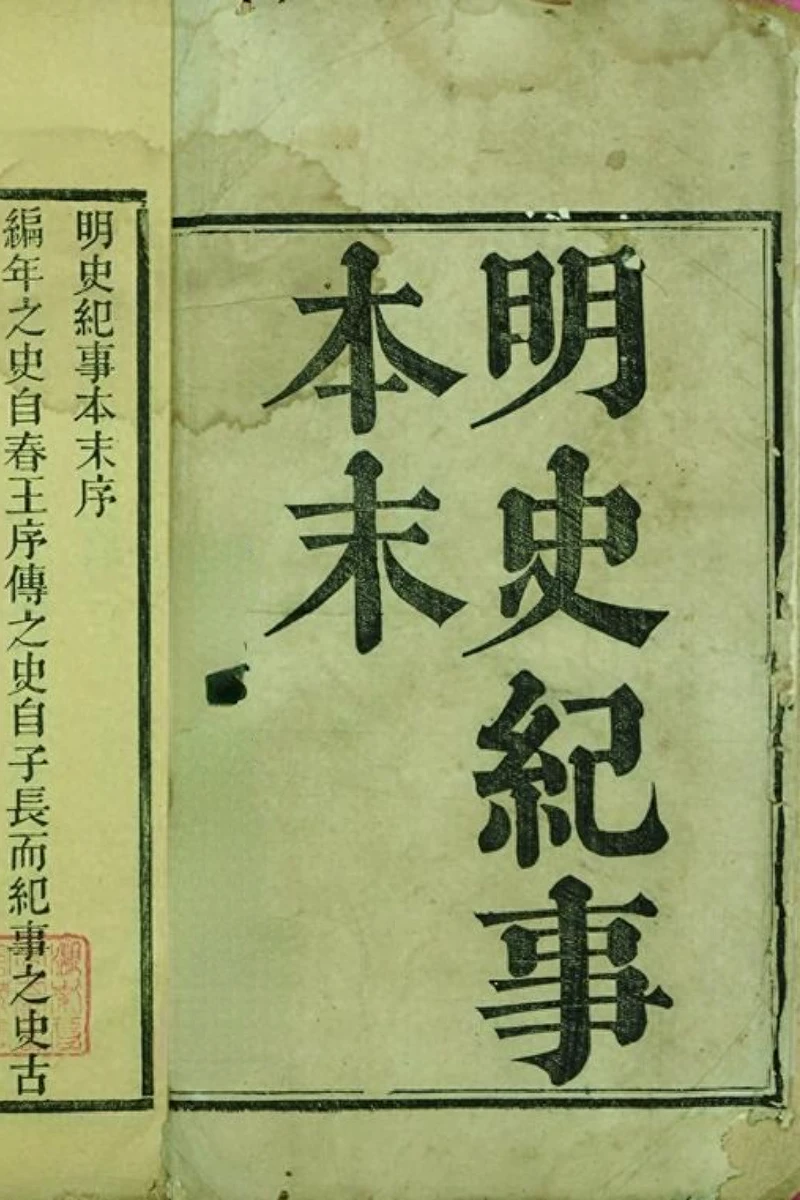 明史紀事
本末
明史紀事本末序
編年之史自春王序傳之史自子長而紀事之史古